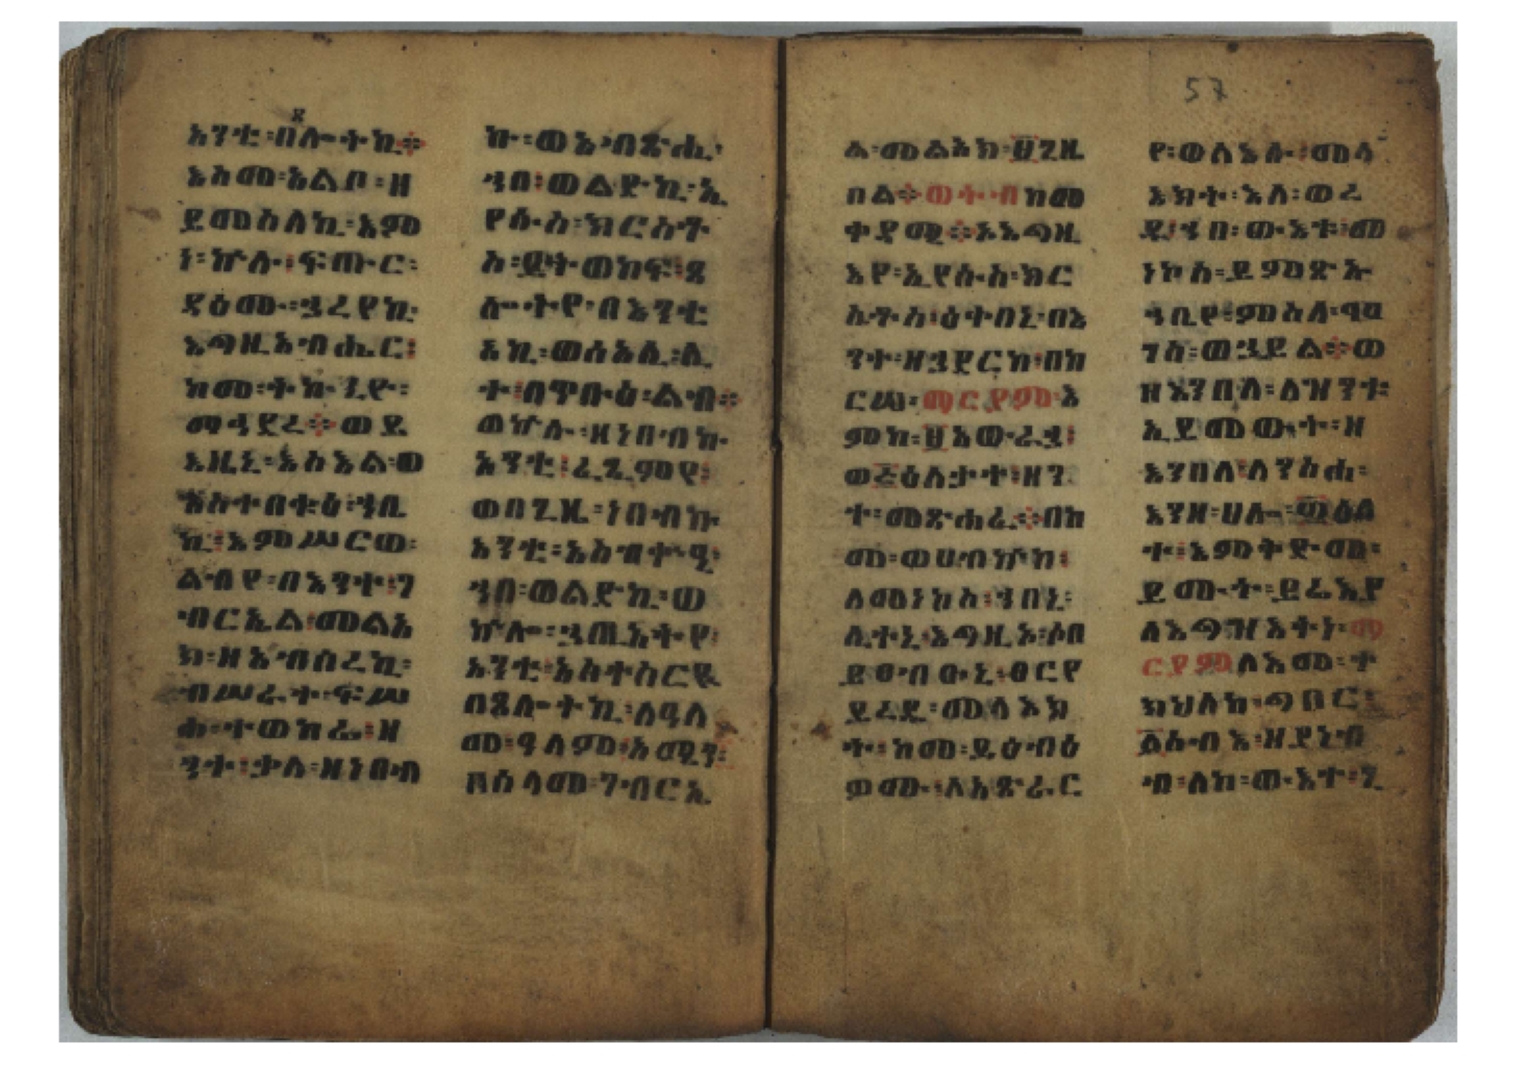 አንቲ፡በጸሎትኪ።
እስመ፡አልቦ፡ዘ
ይመስለኪ፡እም
ነ፡ኵሉ፡ፍጡር፡
ዳዕሙ፡ኃረየኪ
እግዚአብሔር፡
ከመ፡ትኩኒዮ፡
ማኅደረ።ወይ
እዜኒ፡አስእል፡ወ
አስተበቍዕ፡ኀቤ
ኪ፡እምሥርወ፡
ልብየ፡በእንተ፡ገ
ብርኤል፡መልአ
ክ፡ዘአብሰረኪ፡
ብሥራተ፡ፍሥ
ሐ፡ተወከፊ፡ዘ
ንተ፡ቃለ፡ዘነበብ
ኩ፡ወአብጽሒ፡
ኀበ፡ወልድኪ፡ኢ
የሱስ፡ክርስቶ
ስ፡
አኪ፡ወሰአሊ፡ሊ
ተ፡በጥቡዕ፡ልብ።
ወኵሉ፡ዘነበብኩ
አንቲ፡ፈጽምየ፡
ወበጊዜ፡ነበብኩ
አንቲ፡አስተቀ
ኀበ፡ወልድኪ፡ወ
ኵሎ፡ኃጢአትየ
አንቲ፡አስተስርዪ
በጸሎትኪ፡ለዓለ
መ፡ዓለም፡አሜን፡
ሰላመ፡ገብርኤ
ል፡መልአክ፡
በል።ወትብከመ
ቀዳሚ።ኦእግዚ
እየ፡ኢየሱስ፡ክር
ስቶስ፡ዕቀበኒ፡በእ
ንተ፡ዘኃደርከ፡በከ
ርሠ፡ማርያም፡እ
ምከ፡፱አውራኃ፡
ወ፭ዕለታተ፡ዘን
ተ፡መጽሐፈ።በከ
መ፡ወሀብኮከ፡
ለመነኮስ፡ኀበኒ፡
ሊተኒ፡እግዚኦ፡ሶበ
ይፀብዑኒ፡ፀርየ
ይረዱ፡መላእክ
ት፡ከመ፡ይዕብዕ
ዎሙ፡ለአጽራር
የ፡ወለእሉ፡መላ
እክት፡እለ፡ወረ
ዱ፡ኀበ፡ውእቱ፡መ
ነኮስ፡ይምጽኡ
ኀቤየ፡ምስለ፡
ገስ፡ወኃይል።ወ
ዘእንበለ፡ለዝንቱ፡
ኢይመውት፡ዘ
እንበለ፡ለንስሐ፡
እንዘ፡ሀሎ፡
ት፡እምቅድመ፡
ይሙት፡ይፌእየ
ለእግዝእትነ፡ማ
ርያም፡ለእመ፡ተ
ክህለከ፡ግበር፡
ልብስ፡ዘያነብ
ብ፡ለከ፡ውእተ፡ጊ